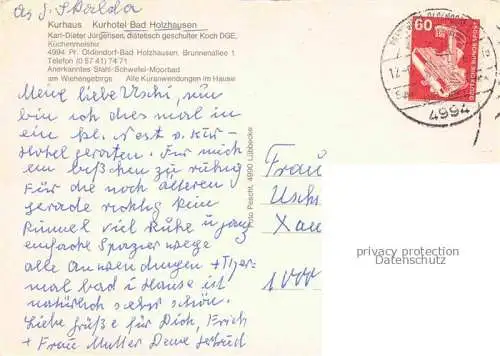 Kurhaus Kurhotel Bad Holzhausen
Karl-Dieter Jürgensen, diätetisch geschulter Koch DGE,
Küchenmeister
4994 Pr. Oldendorf-Bad Holzhausen, Brunnenallee 1
Telefon (0 57 41) 74 71
Anerkanntes Stahl-Schwefel-Moorbad
am Wiehengebirge Alle Kuranwendungen im Hause
Meine liebe Uschi, nun
bin ich dies mal in
ein kl. Nest u. Kur-
Hotel geraten. Für mich
ein bißchen zu ruhig
Für die noch älteren
gerade richtig kein
Rummel viel Ruhe u ganz
einfache Spazierwege
alle Anwendungen + Ther-
malbad i Hause ist
natürlich sehr schön.
Liebe Grüße für Dich, Erich
+ Frau Mutter Deine Gertrud
Foto Peschl, 4990 Lübbecke
60
DEUTSCHE BUNDESPOST
4994
Frau
Uschi
1000
privacy protection
Datenschutz